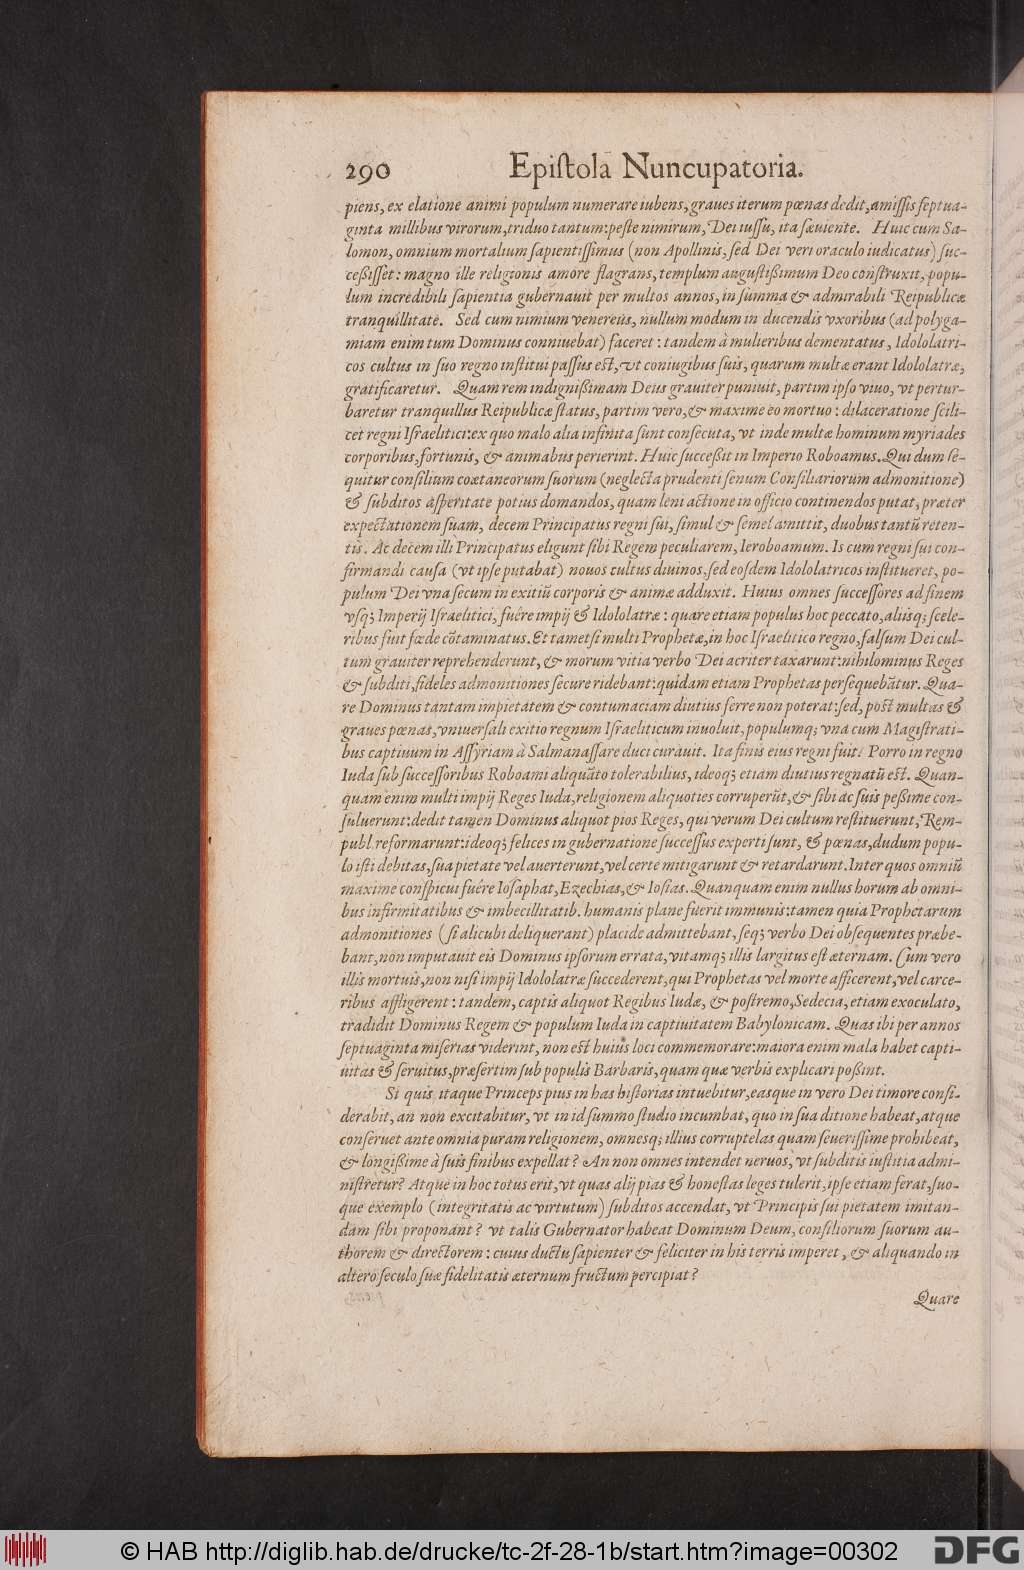 290 Epistola Nuncupatoria.
piens, ex elatione animi populum numerare iubens, graues iterum pœnas dedit, amissis septua-
ginta millibus virorum, triduo tantum: peste nimirum, Dei iussu, ita sæuiente. Huic cum Sa-
lomon, omnium mortalium sapientissimus (non Apollinis, sed Dei veri oraculo iudicatus) suc-
cessisset: magno ille religionis amore flagrans, templum augustißimum Deo construxit, popu-
lum incredibili sapientia gubernauit per multos annos, in summa & admirabili Reipublicæ
tranquillitate. Sed cum nimium venereus, nullum modum in ducendis vxoribus (ad polyga-
miam enim tum Dominus conniuebat) faceret: tandem à mulieribus dementatus, Idololatri-
cos cultus in suo regno institui passus est, vt coniugibus suis, quarum multæ erant Idololatræ,
gratificaretur. Quam rem indignißimam Deus grauiter puniuit, partim ipso viuo, vt pertur-
baretur tranquillus Reipublicæ status, partim vero, & maxime eo mortuo: dilaceratione scili-
cet regni Israelitici: ex quo malo alia infinita sunt consecuta, vt inde multæ hominum myriades
corporibus, fortunis, & animabus perierint. Huic succeßit in Imperio Roboamus. Qui dum se-
quitur consilium coætaneorum suorum (neglecta prudenti senum Consiliariorum admonitione)
& subditos asperitate potius domandos, quam leni actione in officio continendos putat, præter
expectationem suam, decem Principatus regni sui, simul & semel amittit, duobus tantũ reten-
tis. Ac decem illi Principatus eligunt sibi Regem peculiarem, Ieroboamum. Is cum regni sui con-
firmandi causa (vt ipse putabat) nouos cultus diuinos, sed eosdem Idololatricos institueret, po-
pulum Dei vna secum in exitiũ corporis & animæ adduxit. Huius omnes successores ad finem
vsq; Imperij Israelitici, fuére impij & Idololatræ: quare etiam populus hoc peccato, aliisq; scele-
ribus fuit fœde cõtaminatus. Et tametsi multi Prophetæ, in hoc Israelitico regno, falsum Dei cul-
tum grauiter reprehenderunt, & morum vitia verbo Dei acriter taxarunt: nihilominus Reges
& subditi, fideles admonitiones secure ridebant: quidam etiam Prophetas persequebãtur. Qua-
re Dominus tantam impietatem & contumaciam diutius ferre non poterat: sed, post multas &
graues pœnas, vniuersali exitio regnum Israeliticum inuoluit, populumq; vna cum Magistrati-
bus captiuum in Assyriam à Salmanassare duci curauit. Ita finis eius regni fuit. Porro in regno
Iuda sub successoribus Roboami aliquãto tolerabilius, ideoq; etiam diutius regnatũ est. Quan-
quam enim multi impij Reges Iuda, religionem aliquoties corruperũt, & sibi ac suis peßime con-
suluerunt: dedit tamen Dominus aliquot pios Reges, qui verum Dei cultum restituerunt, Rem-
publ. reformarunt: ideoq; felices in gubernatione successus experti sunt, & pœnas, dudum popu-
lo isti debitas, sua pietate vel auerterunt, vel certe mitigarunt & retardarunt. Inter quos omniũ
maxime conspicui fuére Iosaphat, Ezechias, & Iosias. Quanquam enim nullus horum ab omni-
bus infirmitatibus & imbecillitatib. humanis plane fuerit immunis: tamen quia Prophetarum
admonitiones (si alicubi deliquerant) placide admittebant, seq; verbo Dei obsequentes præbe-
bant, non imputauit eis Dominus ipsorum errata, vitamq; illis largitus est æternam. Cum vero
illis mortuis, non nisi impij Idololatræ succederent, qui Prophetas vel morte afficerent, vel carce-
ribus affligerent: tandem, captis aliquot Regibus Iudæ, & postremo, Sedecia, etiam exoculato,
tradidit Dominus Regem & populum Iuda in captiuitatem Babylonicam. Quas ibi per annos
septuaginta miserias viderint, non est huius loci commemorare: maiora enim mala habet capti-
uitas & seruitus, præsertim sub populis Barbaris, quam quæ verbis explicari poßint.
Si quis itaque Princeps pius in has historias intuebitur, easque in vero Dei timore consi-
derabit, an non excitabitur, vt in id summo studio incumbat, quo in sua ditione habeat, atque
conseruet ante omnia puram religionem, omnesq; illius corruptelas quam seuerissime prohibeat,
& longißime à suis finibus expellat? An non omnes intendet neruos, vt subditis iustitia admi-
nistretur? Atque in hoc totus erit, vt quas alij pias & honestas leges tulerit, ipse etiam ferat, suo-
que exemplo (integritatis ac virtutum) subditos accendat, vt Principis sui pietatem imitan-
dam sibi proponant? vt talis Gubernator habeat Dominum Deum, consiliorum suorum au-
thorem & directorem: cuius ductu sapienter & feliciter in his terris imperet, & aliquando in
altero seculo suæ fidelitatis æternum fructum percipiat?
Quare
© HAB http://diglib.hab.de/drucke/tc-2f-28-1b/start.htm?image=00302
DFG